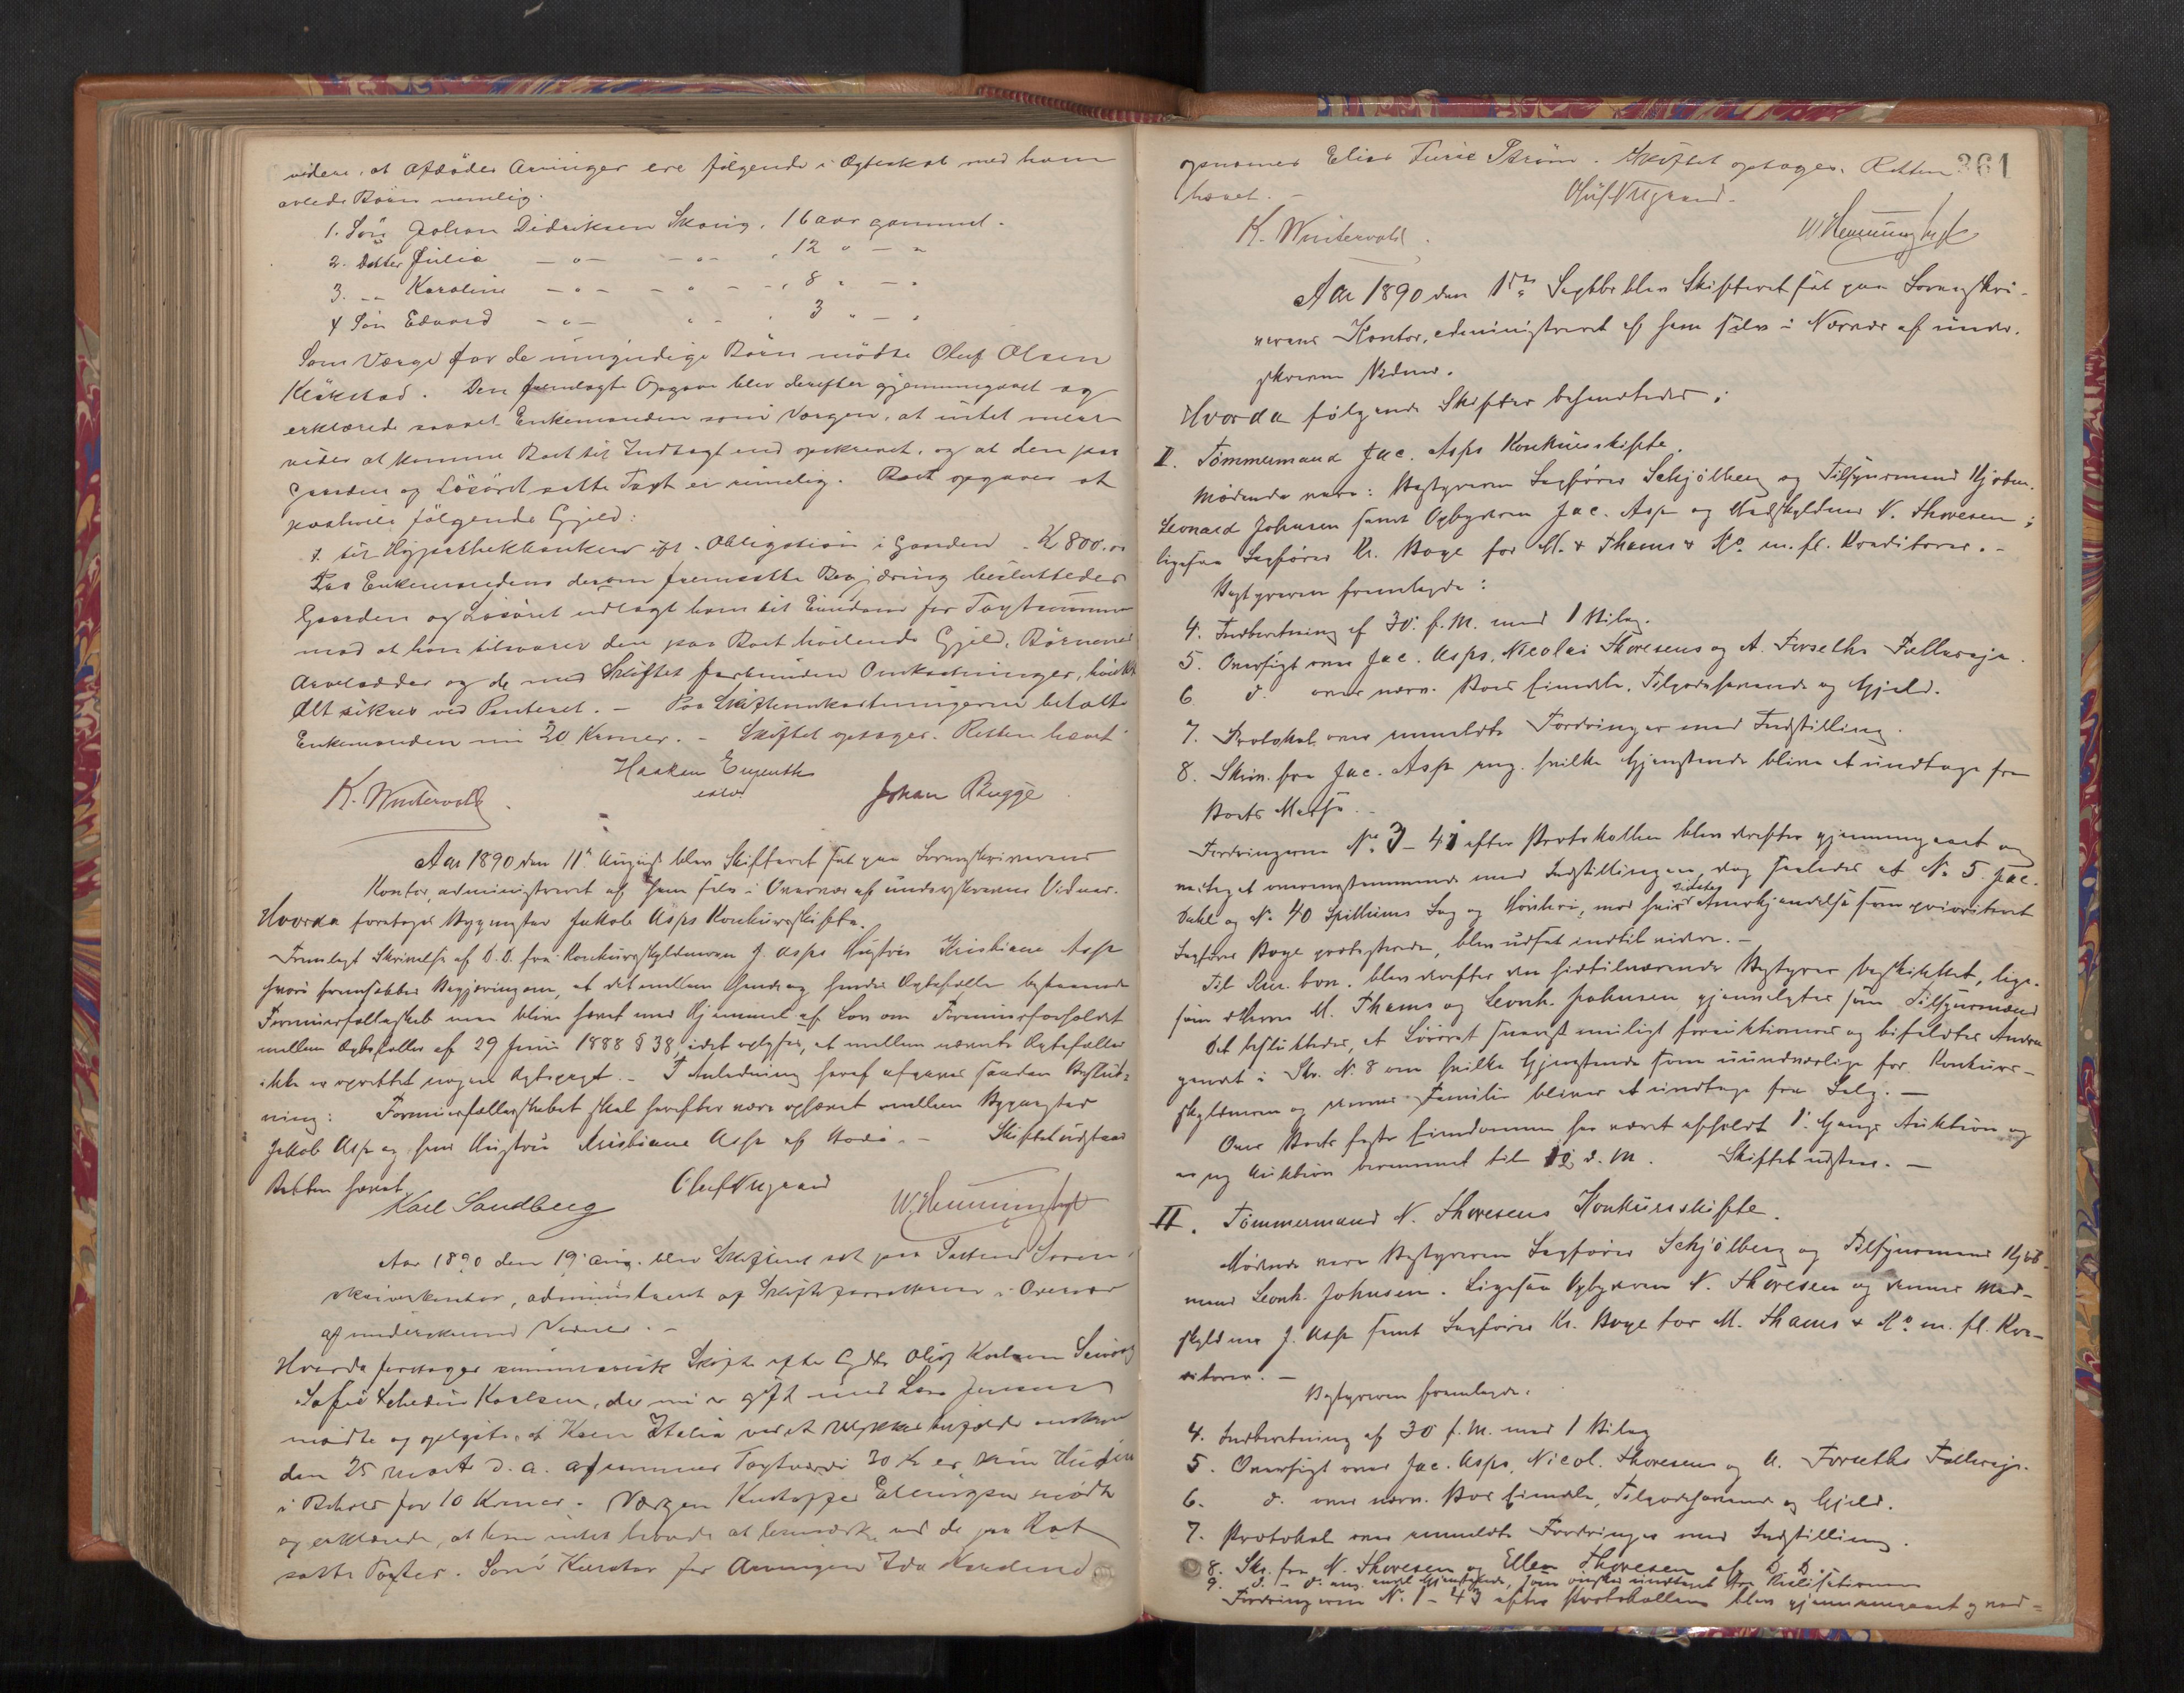 videre, at Afdødes Arvinger ere følgende i Ægteskab med ham
avlede Børn nemlig.
1. Søn Johan Didriksen Skavig, 16 aar gammel.
2. Datter Julia — " — — " — , 12 " — "
3. — " — Karoline — " — — " — , 8 " — "
4 Søn Edvard — " — " — , 3 " — "
Som Værge for de umyndige Børn mødte Oluf Olsen
Kläkstad. Den fremlagte Opgave blev derefter gjennemgaaet og
erklærede saavel Enkemanden som Værgen, at intet mere
vides at komme Boet til Indtægt end opskrevet, og at den paa
Gaarden og Løsøret satte Taxt er rimelig. Boet opgaves at
paahvile følgende Gjeld:
1. til Hypothekbanken eft. Obligation i Gaarden - Kr 800.00
Paa Enkemandens derom fremsatte Begjæring besluttedes
Gaarden og Løsøret udlagt ham til Eiendom for Taxtsummen
mod at han tilsvarer den paa Boet hvilende Gjeld, Børnenes
Arvelodder og de med Skiftet forbundne Omkostninger, hvilket
Alt sikres ved Panteret. — Paa Skifteomkostningerne betalte
Enkemanden nu 20 Kroner. — Skiftet optages. Retten hævet.
K. Wintervold. Haaken Eugenth Johan Bugge
Aar 1890 den 11te August blev Skifteret sat paa Sorenskriverens
Kontor, administreret af ham selv i Overvær af underskrevne Vidner.
Hvorda foretoges Bygmester Jakob Asps Konkursskifte.
Fremlagt Skrivelse af D.D. fra Konkursskyldneren J. Asps Hustru Kristiane Asp
hvori fremsættes Begjæringen, at det mellem hende og hendes Ægtefælle bestaaende
Formuesfællesskab maa blive hævet med Hjemmel af Lov om Formuesforholdet
mellem Ægtefæller af 29 Juni 1888 § 38, idet oplyses, at mellem nævnte Ægtefæller
ikke er oprettet nogen Ægtepagt. — I Anledning heraf afgaves saadan Beslut-
ning: Formuesfællesskabet skal herefter være ophævet mellem Bygmester
Jakob Asp og hans Hustru Kristiane Asp af Bodø. — Skiftet udstaar
Retten hævet.
Karl Sandberg Oluf Nygaard W. Henningtoft
Aar 1890 den 19. Aug. blev Skifteret sat paa Saltens Soren-
skriverkontor, administreret af Skifteforvalteren i Overvær
af underskrevne Vidner. —
Hvorda foretoges summarisk Skifte efter Olaf Karlsen
Sofie Karlsen, der nu er gift med Lars Jensen
mødte og oplyste, at
den 25 Marts d. a. af Taxtværdi 30 Kr er
i Behold for 10 Kroner. Værgen mødte
og erklærede, at han intet havde at bemærke ved de paa Boet
satte Taxter. Som Kurator for Arvingen Ida
361
opnævnes Elias Furre Strøm. Skiftet optages. Retten
hævet. —
K. Wintervold. Oluf Nygaard. W. Henningtoft
Aar 1890 den 15de Septbr blev Skifteret sat paa Sorenskri-
verens Kontor, administreret af ham selv i Nærvær af under-
skrevne Vidner.
Hvorda følgende Skifter behandledes:
I. Tømmermand Jac. Asps Konkursskifte.
Mødende vare: Bestyreren Sagfører Schjølberg og Tilsynsmand Kjøbm.
Leonard Johnsen samt Opbyderen Jac. Asp og Medskyldner N. Thoresen;
ligesaa Sagfører Kr. Bøge for M. & Thams & Ko. m. fl. Kreditorer. —
Bestyreren fremlagde:
4. Indberetning af 30. f. M. med 1 Bilag.
5. Oversigt over Jac. Asps, Nicolai Thoresens og A. Forseths Fælleseje.
6. d. over nævn. Boes Eiendele, Tilgodehavende og Gjeld.
7. Protokol over anmeldte Fordringer med Indstilling.
8. Skriv. fra Jac. Asp ang. hvilke Gjenstande blive at undtage fra
Boets Masse. —
Fordringerne No 3 - 41 efter Protokollen blev derefter gjennemgaaet og
vedtaget overensstemmende med Indstillingen, dog saaledes at No 5 Jac.
Dahl og No 40 Spillums Sag og Høvleri, mod hvis sidstes Anerkjendelse som prioriteret
Sagfører Bøge protesterede, blev udsat indtil videre. —
Til Kur. bon. blev derefter den hidtilværende Bestyrer beskikket, lige-
som Herrer M. Thams og Leonh. Johnsen gjenvalgtes som Tilsynsmænd
Det besluttedes, at Løsøret snarest muligt forauktioneres og bifaldtes Andra-
gendet i Skr. No 8 om hvilke Gjenstande som uundværlige for Konkurs-
skyldneren og dennes Familie bliver at undtage fra Salg. —
Over Boets faste Eiendomme har været afholdt 1. Gangs Auktion og
er ny Auktion berammet til 12 d. M. Skiftet udstaar. —
II. Tømmermand N. Thoresens Konkursskifte.
Mødende vare Bestyreren Sagfører Schjølberg og Tilsynsmand Kjøb-
mand Leonh. Johnsen. Ligesaa Opbyderen N. Thoresen og dennes Med-
skyldner J. Asp samt Sagfører Kr. Bøge for M. Thams & Ko. m. fl. Kre-
ditorer. —
Bestyreren fremlagde.
4. Indberetning af 30 f. M. med 1 Bilag
5. Oversigt over Jac. Asps, Nicol. Thoresens og A. Forseths Fælleseje.
6. d. over nævn. Boes Eiendele, Tilgodehavende og Gjeld.
7. Protokol over anmeldte Fordringer med Indstilling.
8. Skr. fra N. Thoresen og Ellen Thoresen af D. D.
9. d. - d. ang. endel Gjenstande, som ønskes undtaget fra Realisationen
Fordringerne No 1 - 43 efter Protokollen blev gjennemgaaet og ved=